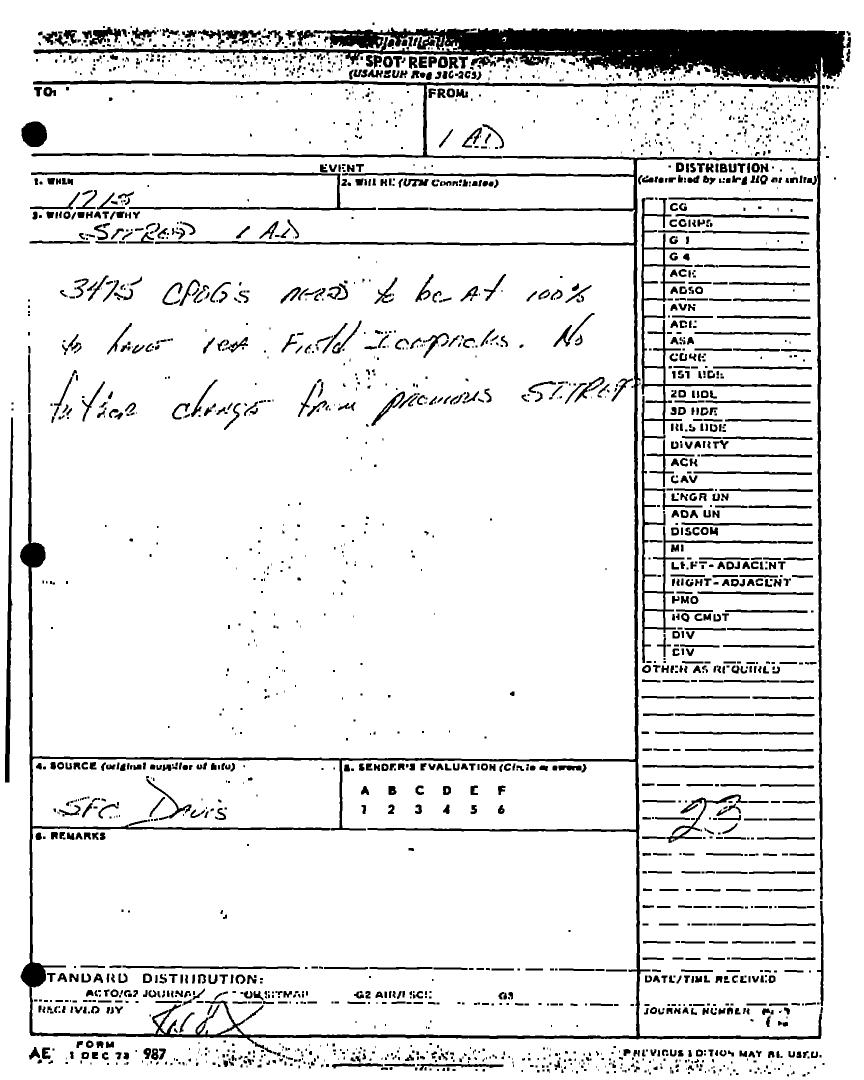 SPOT REPORT
(USAREUR Reg 380-205)
TO:
FROM:
1 AD
EVENT
1. WHEN
1715
2. WHERE (UTM Coordinates)
3. WHO/WHAT/WHY
SITREP 1 AD
3475 CP&G's need to be at 100%
to have Field Icepacks. No
change from previous SITREP
DISTRIBUTION
(determined by using HQ or units)
CG
CORPS
G 1
G 4
ACE
ADSO
AVN
ADE
ASA
1ST BDE
2D BDE
3D BDE
DIVARTY
ACR
CAV
ENGR BN
ADA BN
DISCOM
MI
LEFT-ADJACENT
RIGHT-ADJACENT
PMO
HQ CMDT
DIV
DIV
OTHER AS REQUIRED
23
4. SOURCE (original supplier of info)
SFC Davis
5. SENDER'S EVALUATION (Circle as aware)
A B C D E F
1 2 3 4 5 6
6. REMARKS
STANDARD DISTRIBUTION:
ACTO/G2 JOURNAL SITMAP G2 AIR G3
RECEIVED BY
DATE/TIME RECEIVED
JOURNAL NUMBER
AE FORM 1 DEC 73 987
PREVIOUS EDITION MAY BE USED.